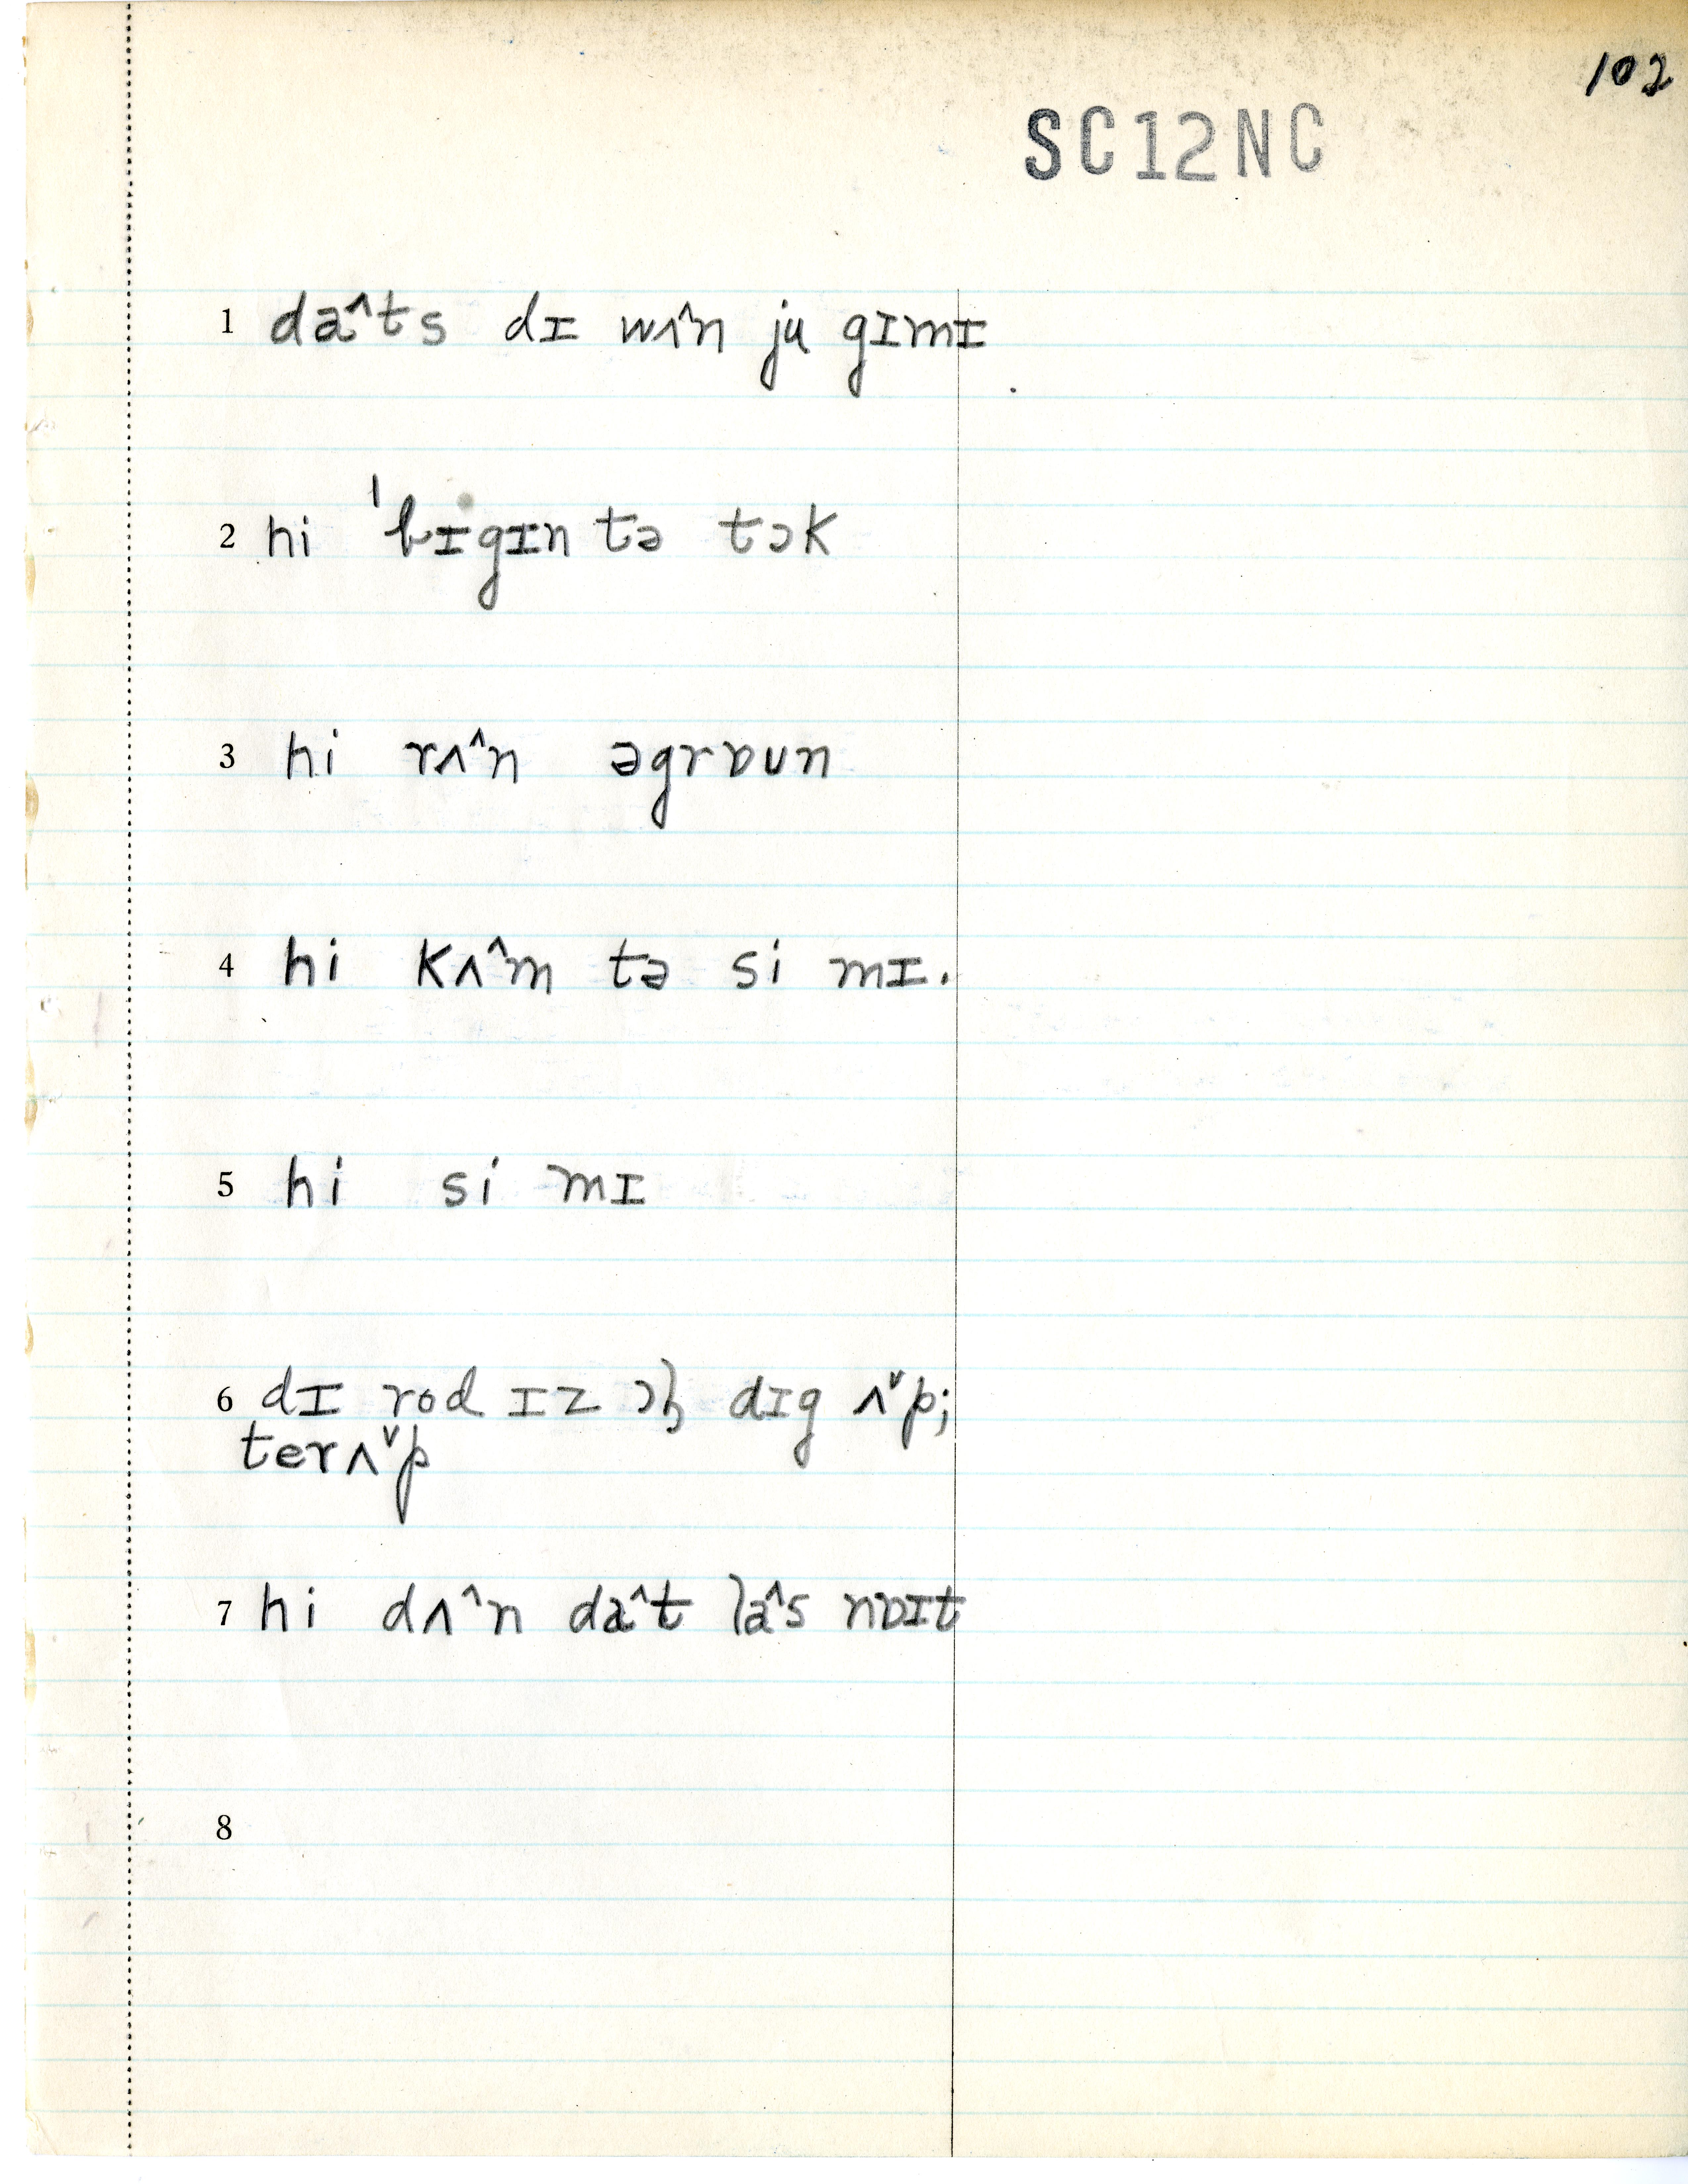 102
SC12NC
1 da^ts dɪ wʌ^n ju gɪmɪ
2 hi 'bɪgɪn tə tɔk
3 hi rʌ^n əgrɒun
4 hi kʌ^m tə si mɪ.
5 hi si mɪ
6 dɪ rod ɪz ɔɫ dɪg ʌˇp;
terʌˇp
7 hi dʌ^n da^t la^s nɒɪt
8